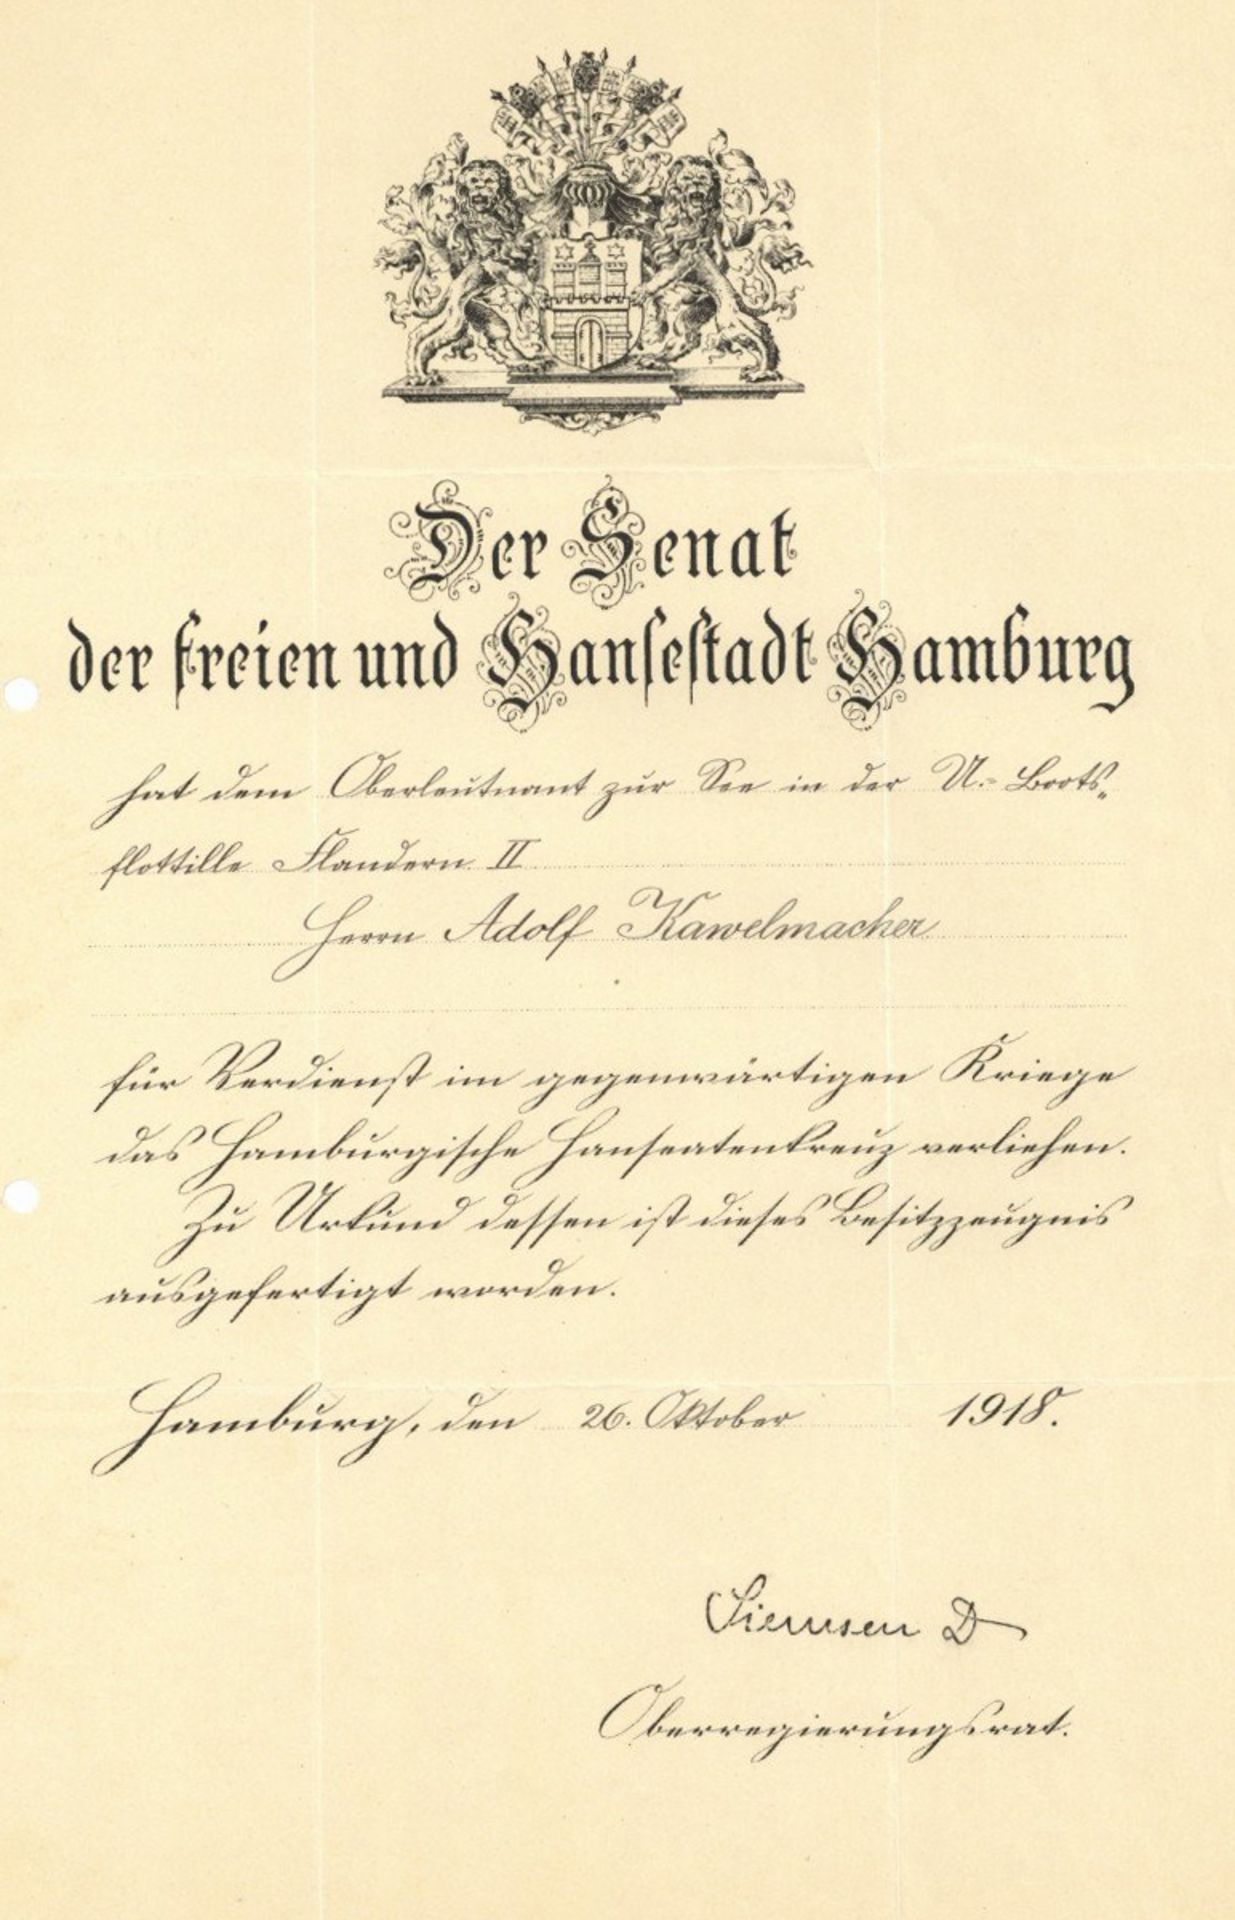 Der Senat
der freien und Hansestadt Hamburg
hat dem Oberleutnant zur See in der U.-Boots-
flottille Flandern II
Herrn Adolf Kawelmacher
für Verdienst im gegenwärtigen Kriege
das Hamburgische Hanseatenkreuz verliehen.
Zu Urkund dessen ist dieses Besitzzeugnis
ausgefertigt worden.
Hamburg, den 26. Oktober 1918.
Siemsen D
Oberregierungsrat.